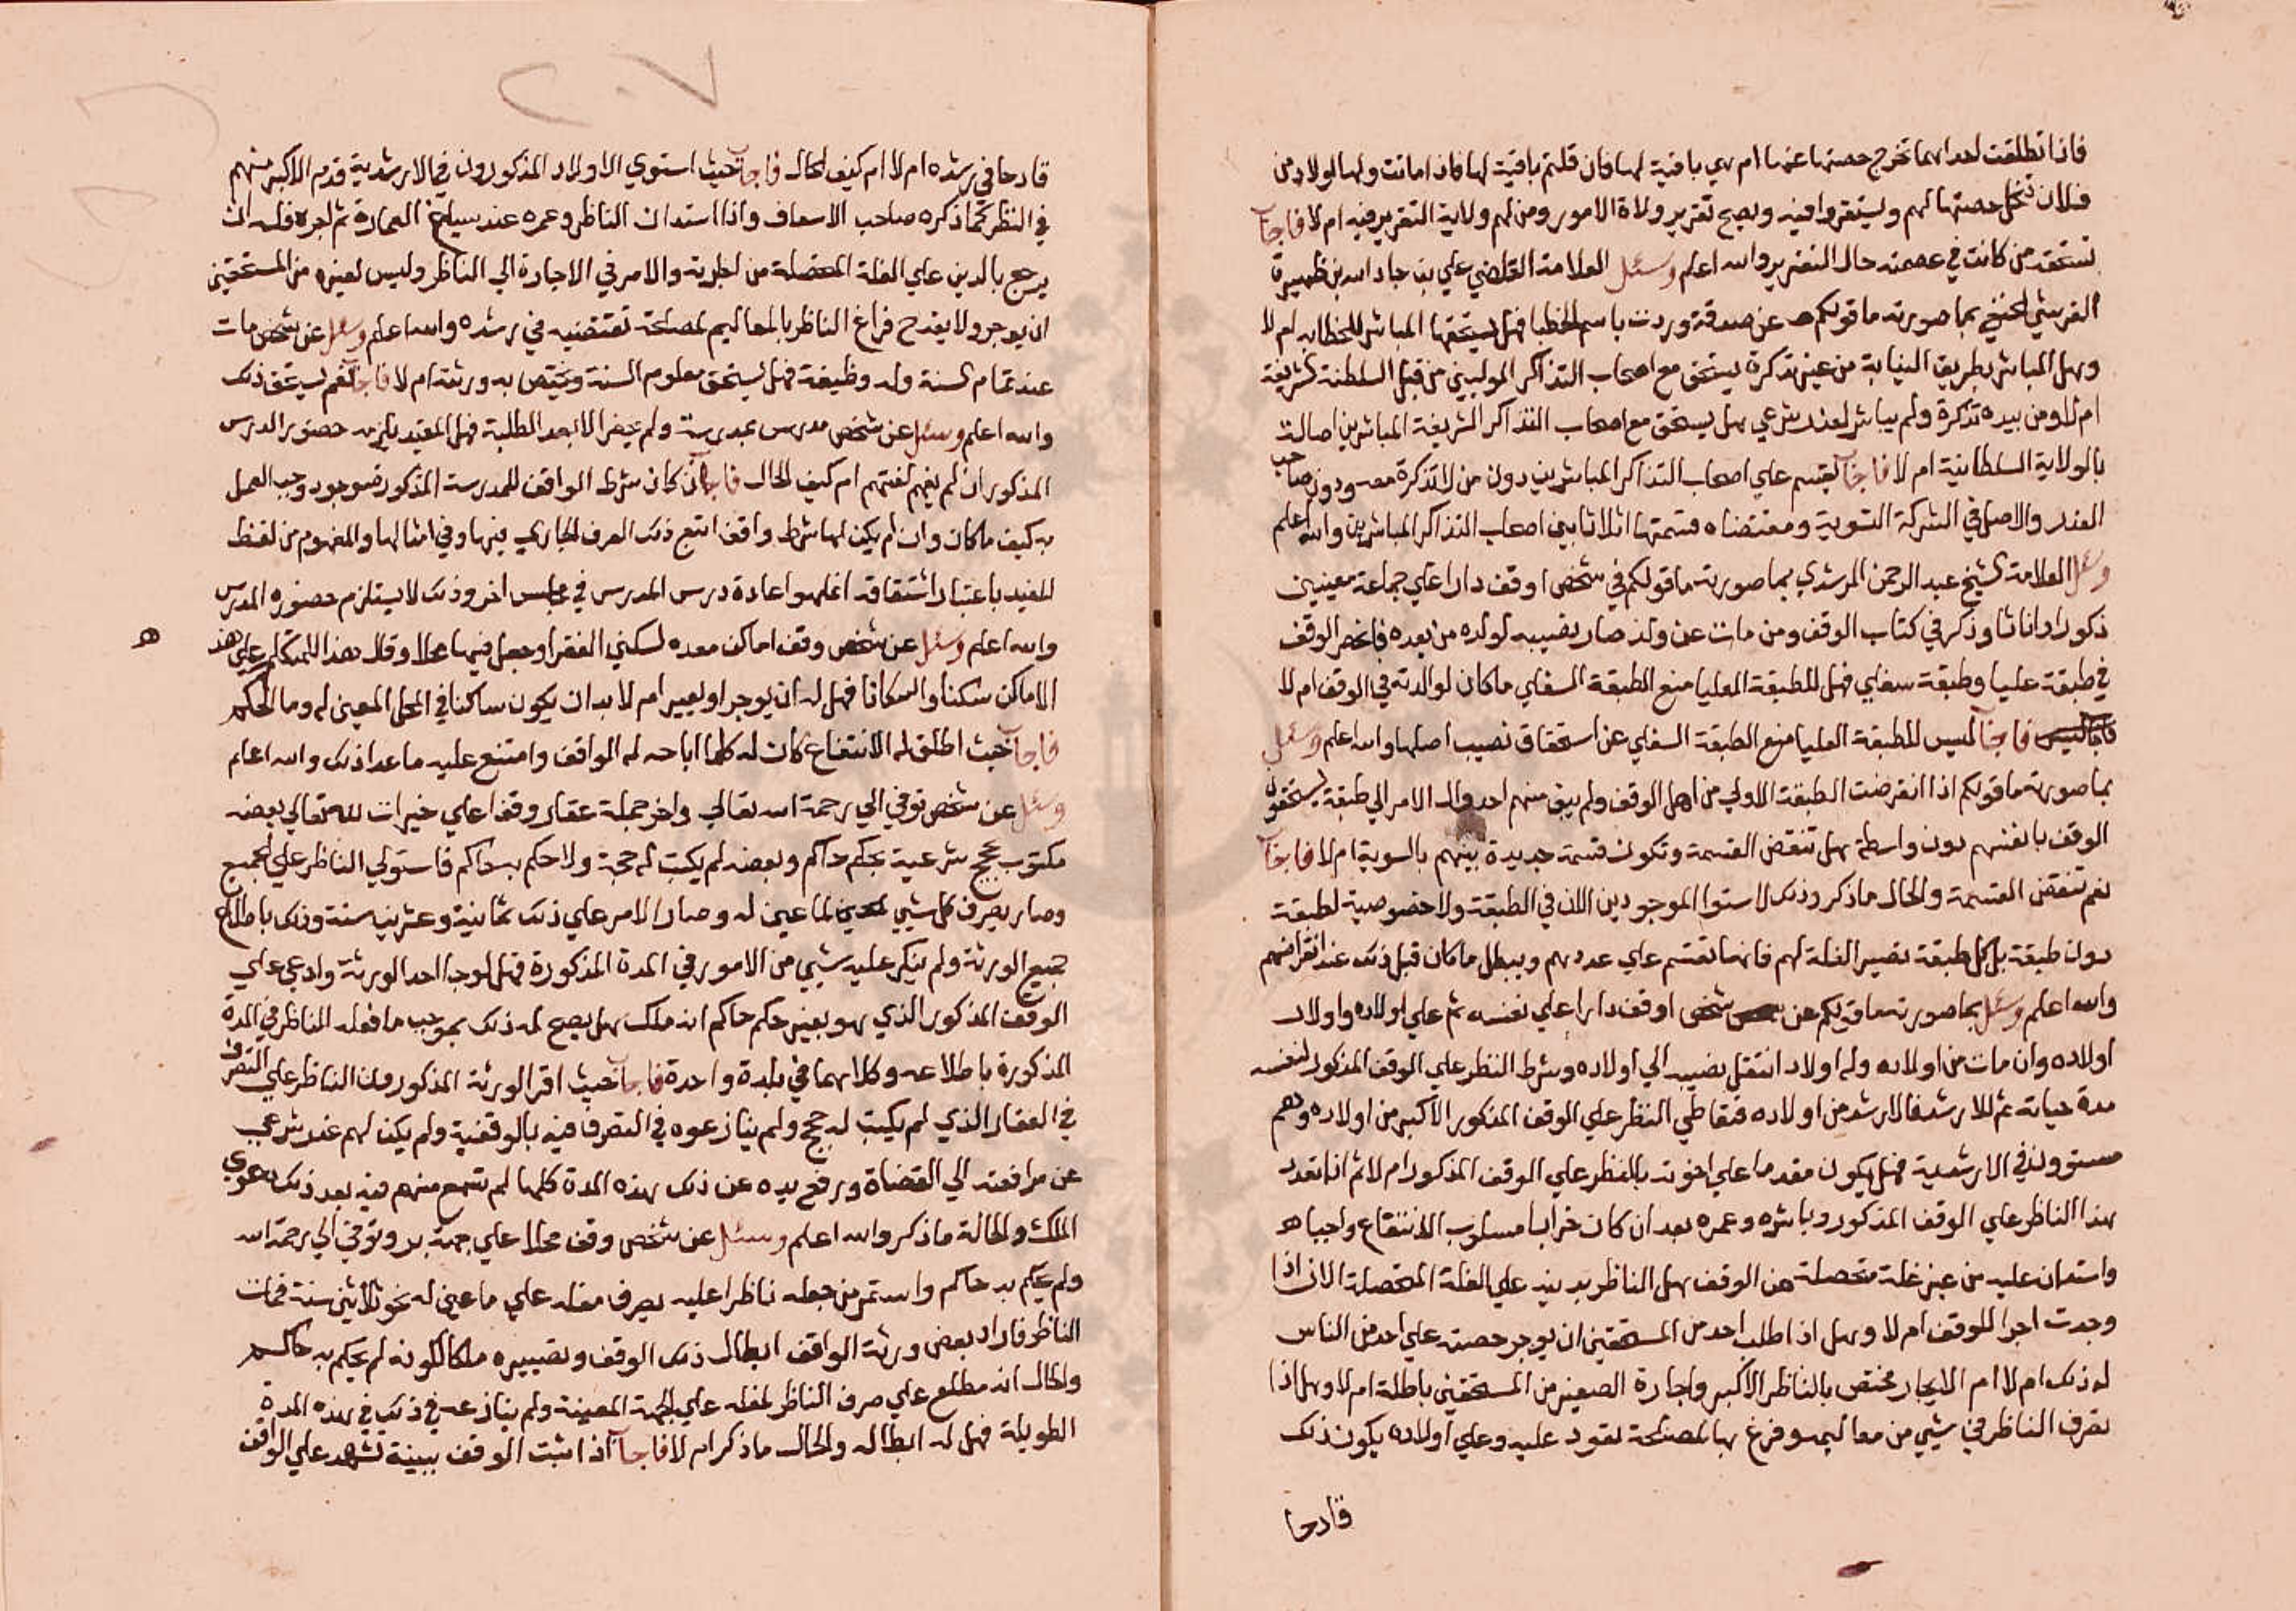 فاذا تطلقت احداهما تخرج حصتها عنها ام هي باقية لها فان قلتم باقية لها فاذا ماتت ولها اولاد من
فلان تنحل حصتها لهم ويستقروا فيه ويصح تقرير ولاة الامور ومن لهم ولاية التقرير فيه ام لا فاجاب
تستحقه من كانت في عصمته حال التقرير والله اعلم وسئل العلامة القاضي علي بن جار الله بن ظهيرة
القرشي الحنفي بما صورته ما قولكم عن صدقة وردت باسم الخطبا فهل يستحقها المباشر للخطابه ام لا
وهل المباشر بطريق النيابة من غير تذكرة يستحق مع اصحاب التذاكر المولين من قبل السلطنة الشريفة
ام لا ومن بيده تذكرة ولم يباشر لعذر شرعي هل يستحق مع اصحاب التذاكر الشريفة المباشرين اصالة
بالولاية السلطانية ام لا فاجاب يقسم علي اصحاب التذاكر المباشرين دون من لا تذكرة معه ودون صاحب
العذر والاصل في الشركة التسوية ومقتضاه قسمتها اثلاثا بين اصحاب التذاكر المباشرين والله اعلم
وسئل العلامة الشيخ عبد الرحمن المرشدي بما صورته ما قولكم في شخص اوقف دارا علي جماعة معينين
ذكورا واناثا وذكر في كتاب الوقف ومن مات عن ولد صار نصيبه لولده من بعده فانحصر الوقف
في طبقة عليا وطبقة سفلي فهل للطبقة العليا منع الطبقة السفلي ما كان لوالدته في الوقف ام لا
فاجاب ليس للطبقة العليا منع الطبقة السفلي عن استحقاق نصيب اصلها والله اعلم وسئل
بما صورته ما قولكم اذا انقرضت الطبقة الاولي من اهل الوقف ولم يبق منهم احد وال الامر الي طبقة يستحقون
الوقف بانفسهم دون واسطة هل تنقض القسمة وتكون قسمة جديدة بينهم بالسوية ام لا فاجاب
نعم تنقض القسمة والحال ما ذكر وذلك لاستوا الموجودين الان في الطبقة ولا خصوصية لطبقة
دون طبقة بل كل طبقة تصير الغلة لهم فانها تقسم علي عددهم ويبطل ما كان قبل ذلك عند انقراضهم
والله اعلم وسئل بما صورته ما قولكم عن شخص اوقف دارا علي نفسه ثم علي اولاده واولاد
اولاده وان مات من اولاده وله اولاد انتقل نصيبه الي اولاده وشرط النظر علي الوقف المذكور لنفسه
مدة حياته ثم للارشد فالارشد من اولاده فتعاطي النظر علي الوقف المذكور الاكبر من اولاده وهم
مستوون في الارشدية فهل يكون مقدما علي اخوته بالنظر علي الوقف المذكور ام لا ثم ان
هذا الناظر علي الوقف المذكور وباشره وعمره بعد ان كان خرابا مسلوب الانتفاع واحياه
واستدان عليه من غير غلة متحصلة من الوقف هل الناظر يدينه علي الغلة المتحصلة الان اذا
وجدت اجرا للوقف ام لا وهل اذا طلب احد من المستحقين ان يوجر حصته علي احد من الناس
له ذلك ام لا ام الايجار مختص بالناظر الاكبر واجارة الصغير من المستحقين باطلة ام لا وهل اذا
تصرف الناظر في شيي من معاليمه وفرغ بها لمصلحة تعود عليه وعلي اولاده يكون ذلك
قادحا
٢٠٧
قادحا في رشده ام لا ام كيف الحال فاجاب حيث استوي الاولاد المذكورون في الارشدية قدم الاكبر منهم
في النظر كما ذكره صاحب الاسعاف واذا استدان الناظر وعمره عند العمارة ثم اجره فله ان
يرجع بالدين علي الغلة المتحصلة من اجرته والامر في الاجارة الي الناظر وليس لغيره من المستحقين
ان يوجر ولا يقدح فراغ الناظر بالمعاليم لمصلحة تقتضيه في رشده والله اعلم وسئل عن شخص مات
عند تمام السنة وله وظيفة فهل يستحق معلوم السنة ويختص به ورثته ام لا فاجاب نعم يستحق ذلك
والله اعلم وسئل عن شخص مدرس بمدرسة ولم يحضر الا بعد الطلبة فهل المعيد يلزمه حضور الدرس
المذكور ان لم يفهم لغتهم ام كيف الحال فاجاب ان كان شرط الواقف للمدرسة المذكور موجود وجب العمل
به كيف ما كان وان لم يكن لها شرط واقف اتبع ذلك العرف الجاري فيها وفي امثالها والمفهوم من لفظ
المعيد باعتبار اشتقاقه انما هو اعادة درس المدرس في مجلس اخر وذلك لا يستلزم حضوره المدرس
والله اعلم وسئل عن شخص وقف اماكن معده لسكني الفقرا وجعل فيها محلا وقال هذا للمتكلم علي هذه
الاماكن سكنا واسكانا فهل له ان يوجر او يعير ام لا بد ان يكون ساكنا في المحل المعين له وما الحكم
فاجاب حيث اطلق له الانتفاع كان له كلما اباحه له الواقف وامتنع عليه ما عدا ذلك والله اعلم
وسئل عن شخص توفي الي رحمة الله تعالي واخر جملة عقار وقفا علي خيرات لله تعالي بعضه
مكتوب بحجج شرعية بحكم حاكم وبعضه لم يكتب له حجة ولا حكم به حاكم فاستولي الناظر علي الجميع
وصار يصرف كل شيي لما عين له وصار الامر علي ذلك ثمانية وعشرين سنة وذلك باطلاع
جميع الورثة ولم ينكر عليه شيي من الامور في المدة المذكورة فهل لوجا احد الورثة وادعي علي
الوقف المذكور الذي هو بغير حكم حاكم انه ملك هل يصح له ذلك بموجب ما فعله الناظر في المدة
المذكورة باطلاعه وكلاهما في بلدة واحدة فاجاب حيث اقر الورثة المذكورون الناظر علي التصرف
في العقار الذي لم يكتب له حجج ولم ينازعوه في التصرف فيه بالوقفية ولم يكن لهم عذر شرعي
عن مرافعته الي القضاة ورفع يده عن ذلك بهذه المدة كلها لم تسمع منهم فيه بعد ذلك دعوي
الملك والحالة ما ذكر والله اعلم وسئل عن شخص وقف محلا علي جهة بر وتوفي الي رحمة الله
ولم يحكم به حاكم واستمر من جعله ناظرا عليه يصرف مغله علي ما عين له نحو ثلاثين سنة فمات
الناظر فاراد بعض ورثة الواقف ابطال ذلك الوقف وتصييره ملكا لكونه لم يحكم به حاكم
والحال انه مطلع علي صرف الناظر لمغله علي الجهة المعينة ولم ينازعه في ذلك في هذه المدة
الطويلة فهل له ابطاله والحال ما ذكر ام لا فاجاب اذا ثبت الوقف ببينة تشهد علي الواقف